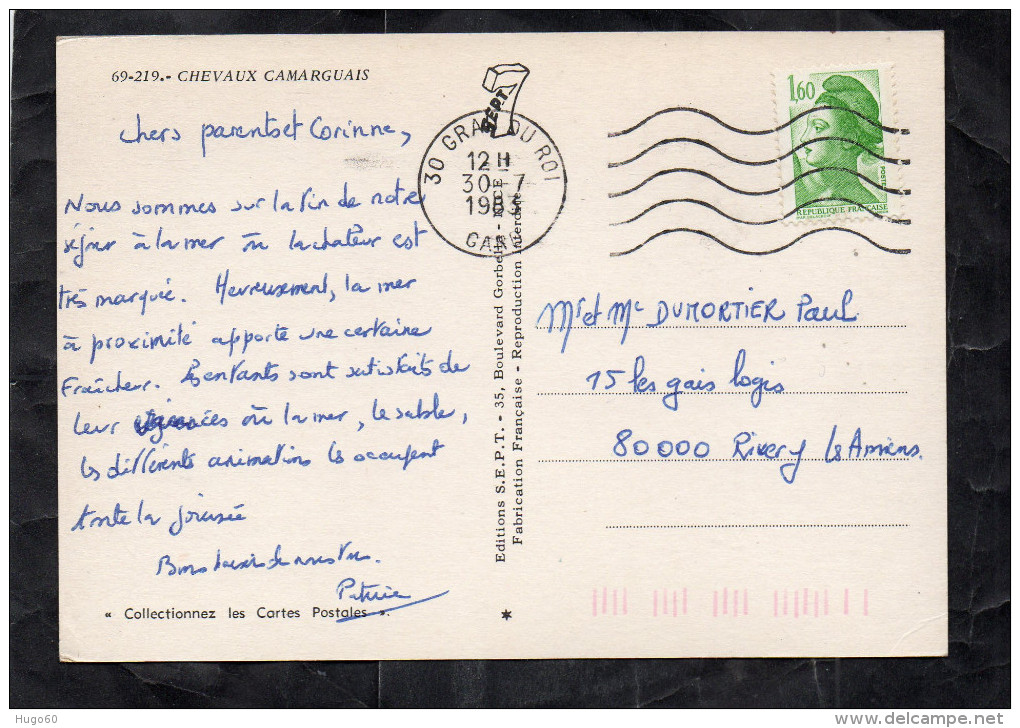 69-219.- CHEVAUX CAMARGUAIS
Chers parents et Corinne,
Nous sommes sur la fin de notre
séjour à la mer où la chaleur est
très marquée. Heureusement, la mer
à proximité apporte une certaine
fraîcheur. Les enfants sont satisfaits de
leur vacances où la mer, le sable,
les différents animations les occupent
toute la journée
Bons baisers de nous tous.
« Collectionnez les Cartes Postales ».
Editions S.E.P.T. - 35, Boulevard Gorbella - NICE
Fabrication Française - Reproduction Interdite
*
SEPT
30 GRAU DU ROI
12 H
30-7
1983
GARD
1,60
POSTES
REPUBLIQUE FRANÇAISE
Mr et Me DUMORTIER Paul
15 les gais logis
80000 Rivery les Amiens.
Hugo60
delcampe.net